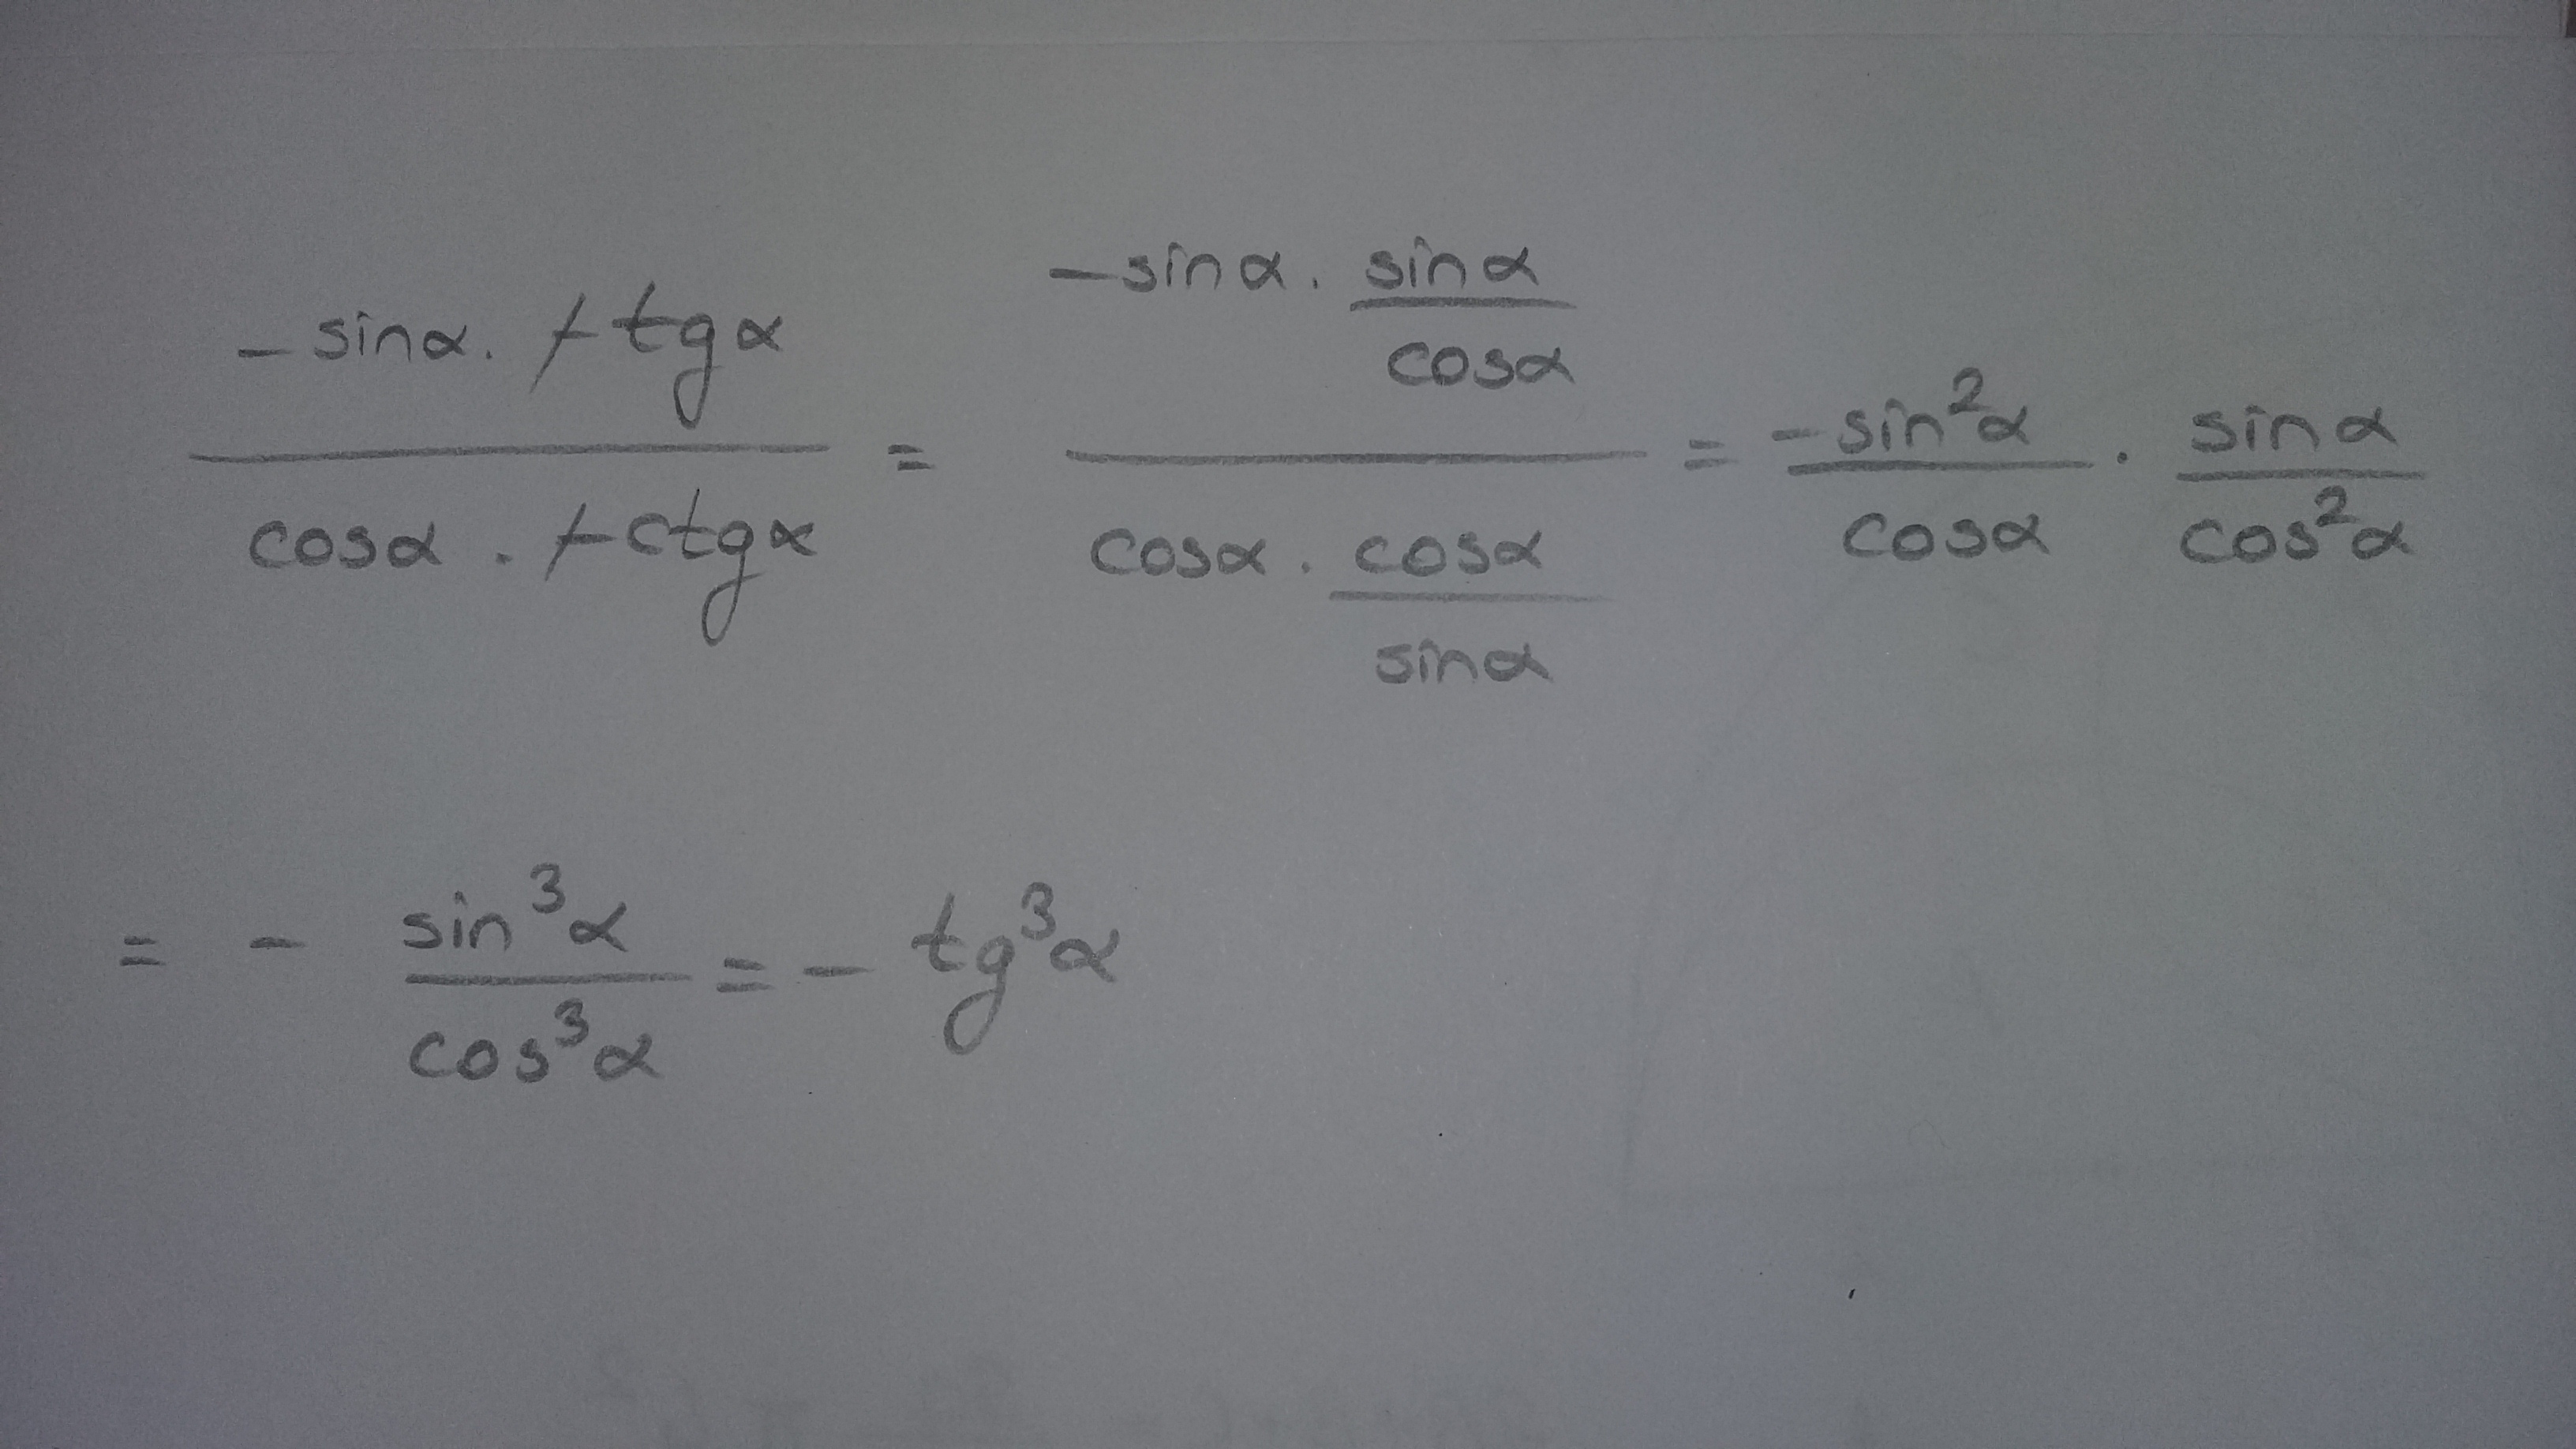 (-sinα · -tgα)/(cosα · -ctgα) = (-sinα · sinα/cosα)/(cosα · cosα/sinα) = -sin²α/cosα · sinα/cos²α
= - sin³α/cos³α = - tg³α